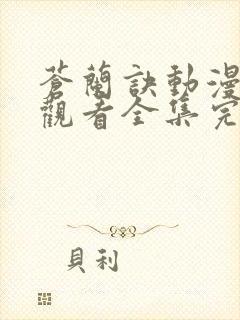 蒼蘭訣動漫
觀看全集完
貝利